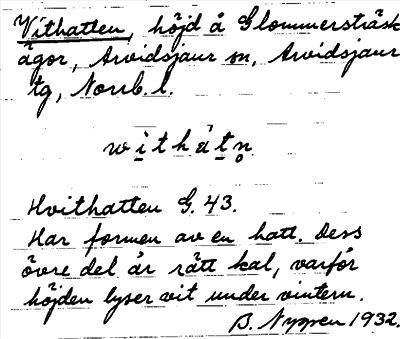 Vithatten, höjd å Glommersträsk
ägor, Arvidsjaur sn, Arvidsjaur
tg, Norrb. l.
withátn̥
Hvithatten G. 43.
Har formen av en hatt. Dess
övre del är rätt kal, varför
höjden lyser vit under vintern.
B. Nygren 1932.